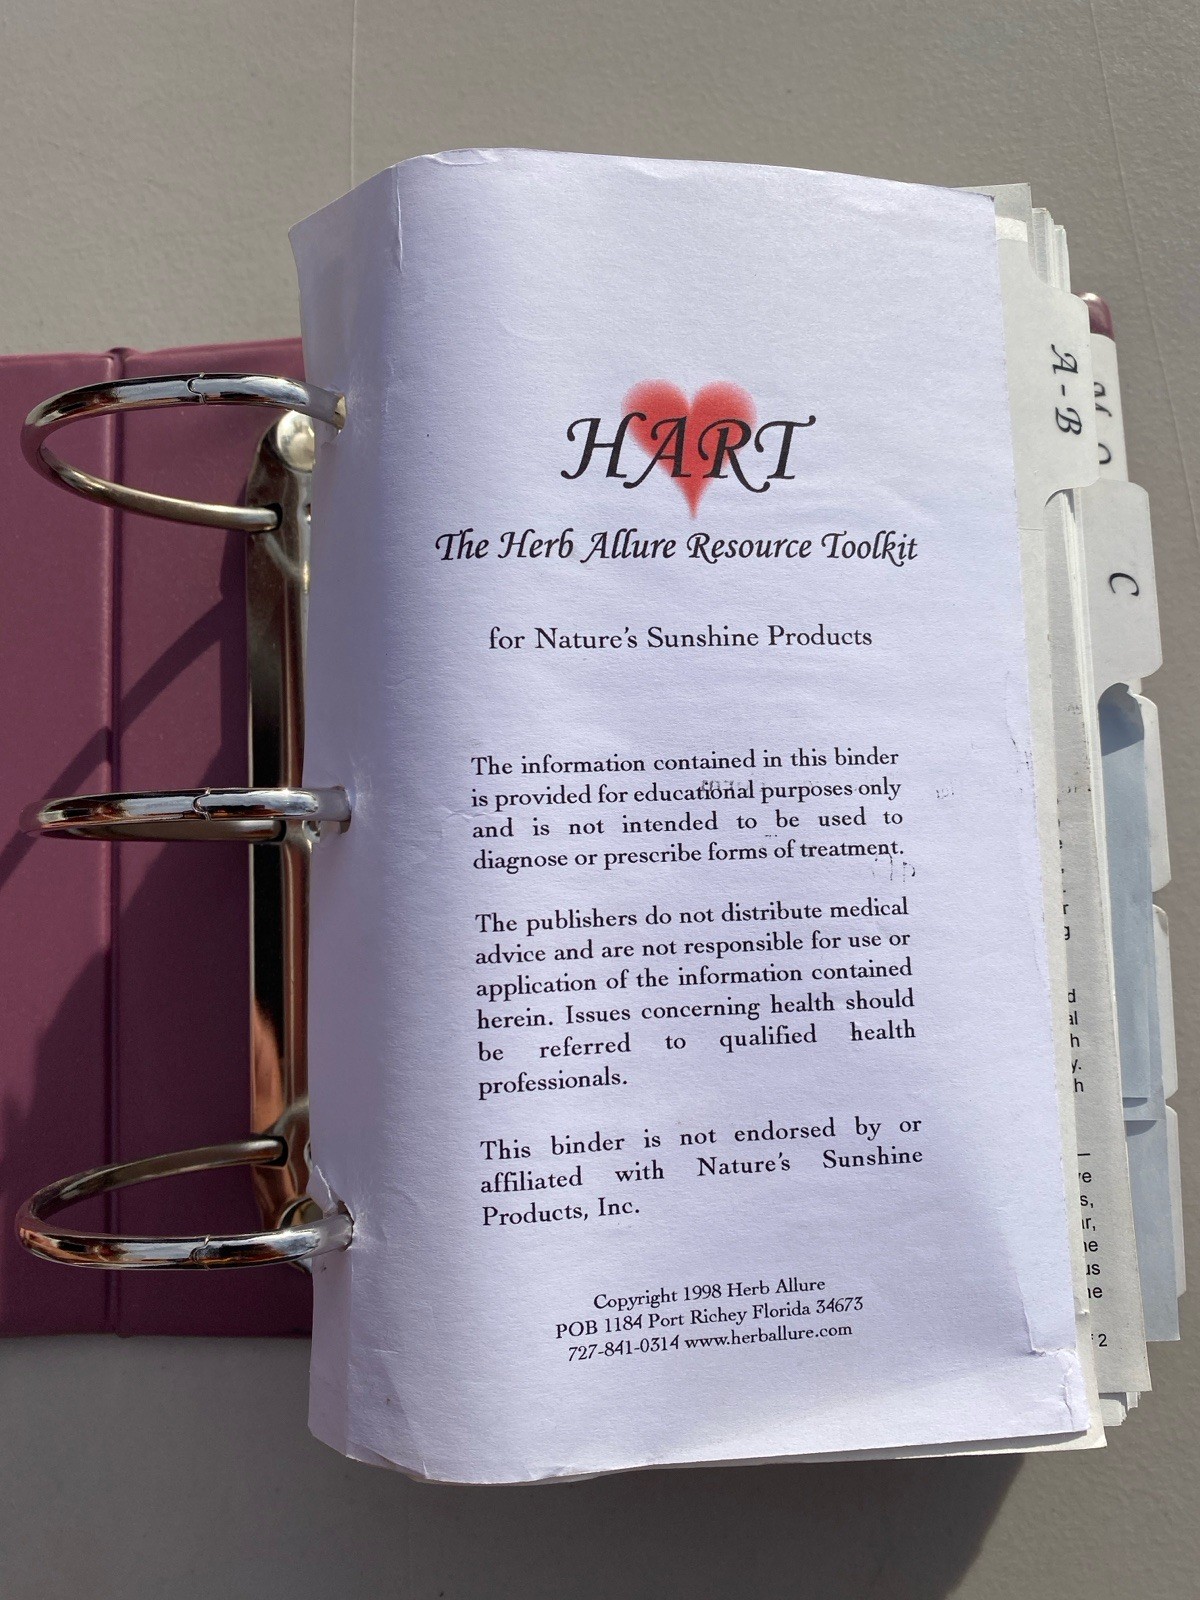 HART
The Herb Allure Resource Toolkit
for Nature's Sunshine Products
The information contained in this binder
is provided for educational purposes only
and is not intended to be used to
diagnose or prescribe forms of treatment.
The publishers do not distribute medical
advice and are not responsible for use or
application of the information contained
herein. Issues concerning health should
be referred to qualified health
professionals.
This binder is not endorsed by or
affiliated with Nature's Sunshine
Products, Inc.
Copyright 1998 Herb Allure
POB 1184 Port Richey Florida 34673
727-841-0314 www.herballure.com
A-B
C